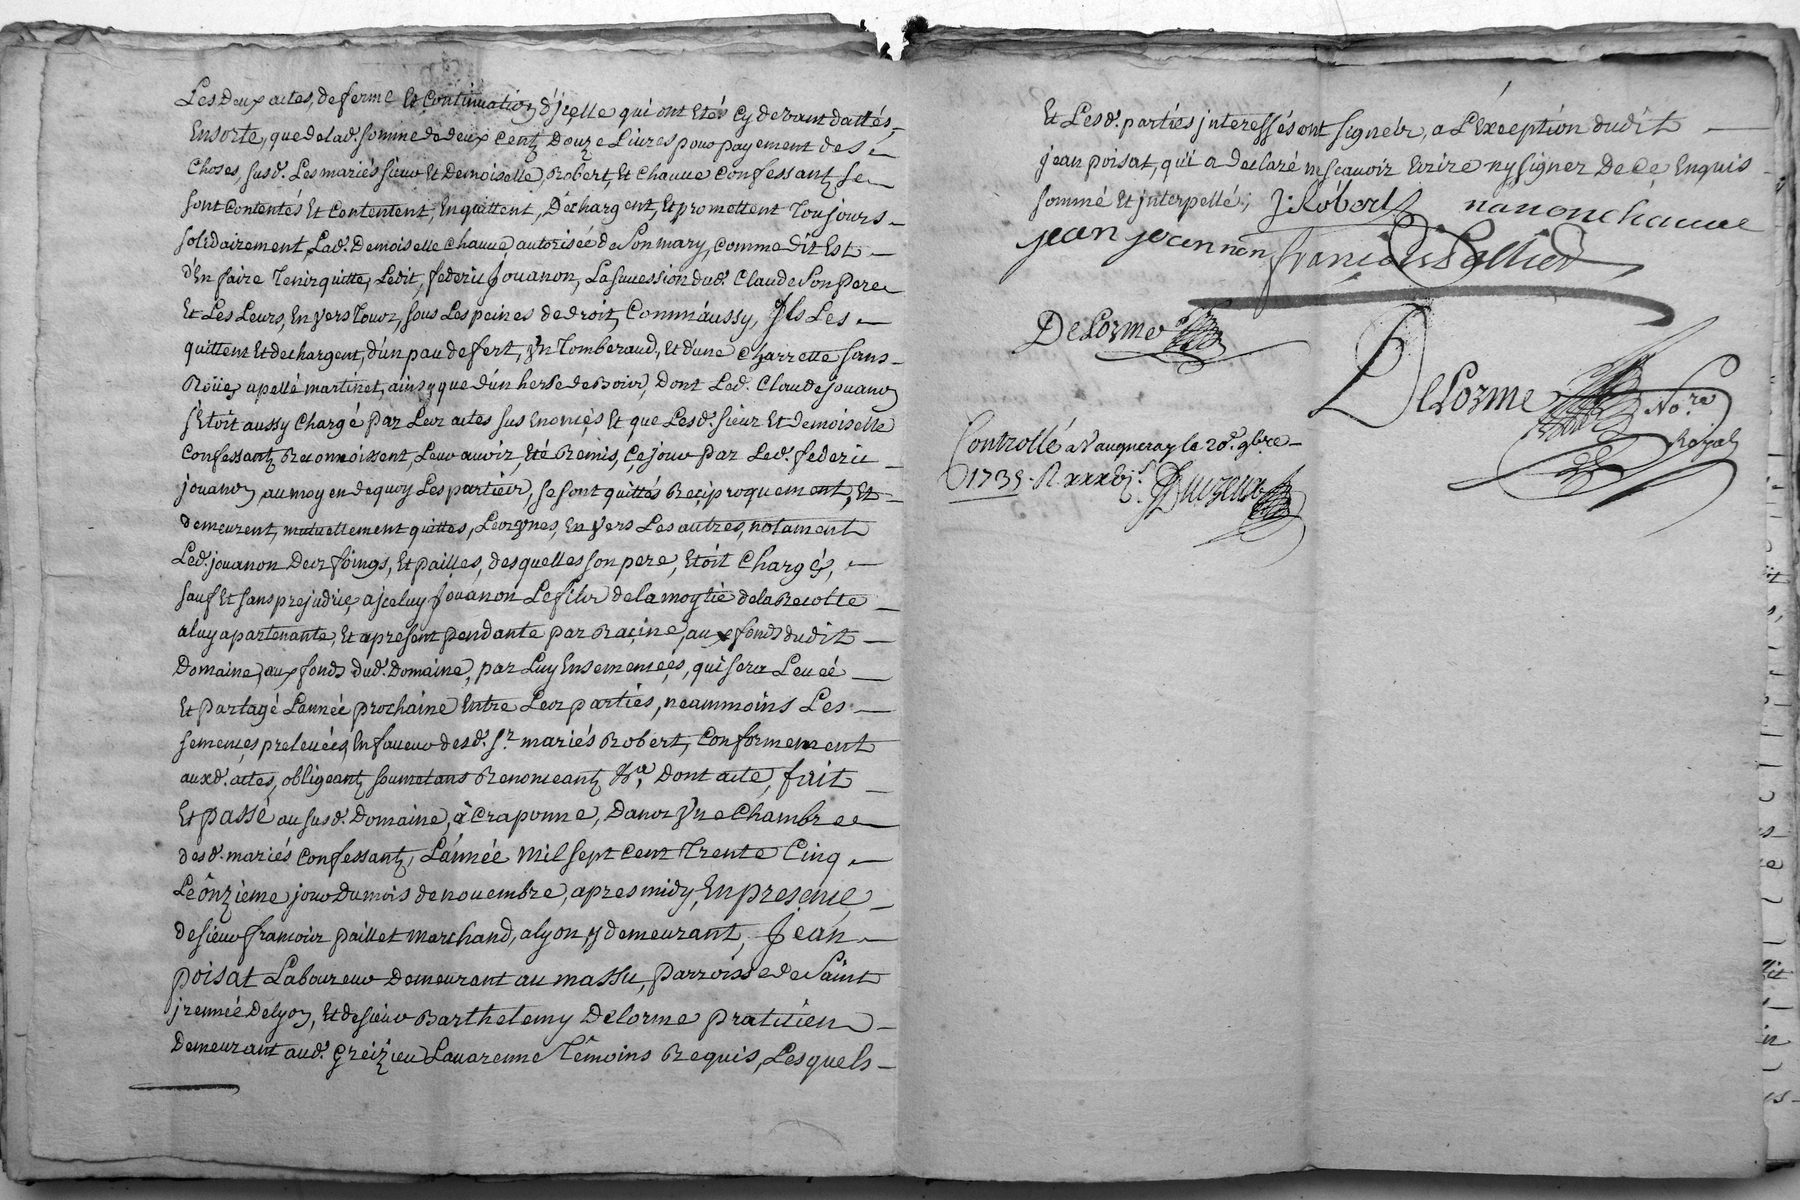 Les deux actes, de ferme et continuation d'jcelle qui ont etés cy devant dattés,
Ensorte, que de lad. somme de deux cent douze Livres pour payement des
choses, susd. Les mariés sieur et demoiselle, Robert, et chauue confessant se
sont contentés et contentent, En quittent, Déchargent, et promettent toujours
solidairement, Lad. Demoiselle chauue autorisée de son mary, comme dit est
d'En faire tenir quitte, Ledit, federic jouanon, La succession dud. Claude son pere
et Les Leurs, En vers touor, sous Les peines de droit, comm'aussy, jls Les
quittent et dechargent, d'un pau de fert, vn tomberaud, et d'une charrette sans
Roües apellé martinet, ainsy que d'un herse de Boix, dont Led. claude jouanon
s'étoit aussy chargé par Les actes sus enoncés et que Lesd. sieur et demoiselle
confessant Reconnoissent, Leur auoir, eté Remis, ce jour par Led. federic
jouanon, au moyen de quoy Les parties, se sont quittés Reciproquement, et
demeurent, mutuellement quittes, Les vnes, en vers Les autres, notament
Led. jouanon des foings, et pailles, desquelles son pere, etoit chargés,
sauf et sans prejudice a jceluy jouanon Le fils de la moytié de la Recolte
a luy apartenante, et a present pendante par Racine, aux fonds dudit
Domaine, aux fonds dud. Domaine, par Luy Ensemencés, qui sera Leueé
et partagé L'année prochaine entre Les parties, neammoins Les
semences preleueés En faueur desd. sr mariés Robert, conformement
auxd. actes, obligeant soumetans Renonceant &a, Dont acte, fait
et passé au susd. Domaine, à craponne, Dans vne chambre
desd. mariés confessant, L'année mil sept cent trente cinq
Le onzieme jour du mois de nouembre, apres midy, En presence
de sieur francois paillet marchand, a lyon y demeurant, Jean
poisat Laboureur demeurant au massu, parroisse de Saint
jrennée de lyon, et de sieur Barthelemy Delorme praticien
Demeurant aud. greizieu Lauarenne témoins Requis, Lesquels
et Lesd. parties jnteressés ont signeés, a L'Exception dudit
jean poisat, qui a declaré ne scauoir Ecrire ny signer de ce Enquis
sommé et jnterpellé; J: Robert nanon chauue
jean joannon françois Pallied
Delorme
Delorme No.re
Royal
Controllé a Vaugneray le 20e. 9bre
1735. R